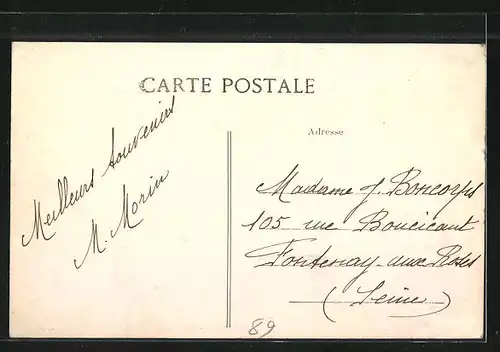 CARTE POSTALE
Meilleurs souvenirs
M. Morin
Adresse
Madame J. Boncorps
105 rue Boucicaut
Fontenay-aux-Roses
(Seine)
89